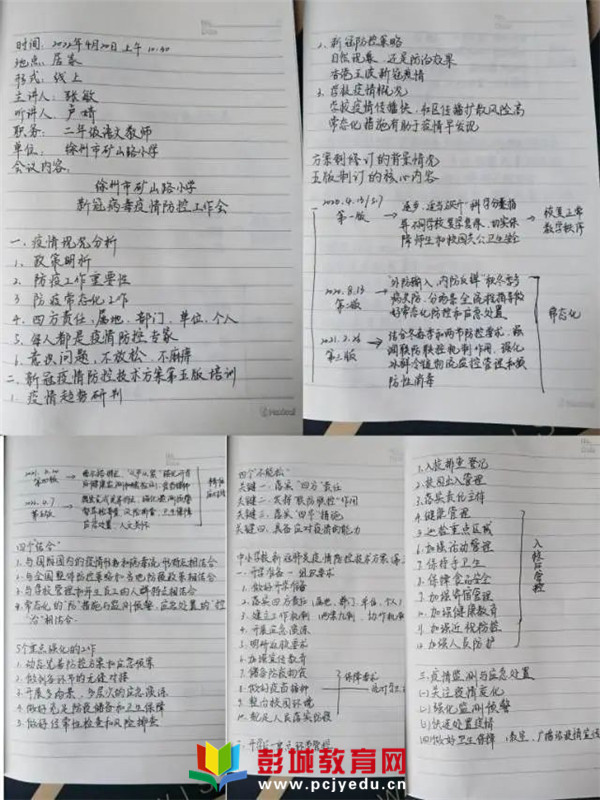 时间：2022年4月20日上午10:40
地点：居家
形式：线上
主讲人：张敏
听讲人：卢晴
职务：二年级语文教师
单位：徐州市矿山路小学
会议内容：
徐州市矿山路小学
新冠病毒疫情防控工作会
一、疫情现况分析
1、政策明晰
2、防疫工作重要性
3、防疫常态化工作
4、四方责任，属地、部门、单位、个人
5、每人都是疫情防控专家
6、意识问题，不放松，不麻痹
二、新冠疫情防控技术方案第五版培训
1、疫情趋势研判
2、新冠防控策略
自然现象 还是防治效果
香港五波新冠疫情
3、学校疫情概况
学校疫情传播快，社区传播扩散风险高
常态化措施有助于疫情早发现
方案制修订的背景情况
五版制订的核心内容
2020.4.13/27
第一版
科学分类指
导不同学校复学复课，切实保
障师生和校园公共卫生安全
恢复正常
教学秩序
2020.8.13
第二版
"外防输入，内防反弹"秋冬季多
病共防，分病类全流程指导做
好常态化防控和应急处置
2021.2.26
第三版
结合冬春季和两节防控要求，强
调联防联控机制作用，强化
防性消毒
常态化
第四版
第五版
应急处置、人文关怀
四个"结合"
1、与国际国内的疫情形势和病毒流行特征相结合
2、与全国整体防控策略和各地防疫政策相结合
3、与学校管理和师生员工的人群特点相结合
4、常态化的"防"措施与监测预警、应急处置的"控"
"治"相结合。
5个重点强化的工作
1、动态完善防控方案和应急预案
2、做到各环节的无缝对接
3、开展多场景、多层次的应急演练
4、做好充足防疫储备和卫生保障
5、做好经常性检查和风险排查
四个"不能松"
关键一、落实"四方"责任
关键二、发挥"联防联控"作用
关键三、落实"四早"措施
关键四、具备应对疫情的能力
中小学校新冠肺炎疫情防控技术方案(第五
一、开学准备一组织要求
1、做好开学准备
2、落实四方责任(属地、部门、单位、个人)
4、开展应急演练
5、明确返校要求
6、加强宣传教育
7、储备防疫物资
8、做好疫苗接种
9、整治校园环境
10、配足人员落实防疫
保障要求
1、入校排查登记
2、校园出入管理
3、落实责任主体
4、健康管理
5、巡检重点区域
6、加强活动管理
7、保持手卫生
8、保障食品安全
9、加强宿舍管理
10、加强健康教育
11、加强近视防控
12、加强人员防护
入校后管理
三、疫情监测与应急处置
(一)关注疫情变化
(二)强化监测预警
(三)快速处置疫情
(四)做好卫生保障
彭城教育网
www.pcjyedu.cn